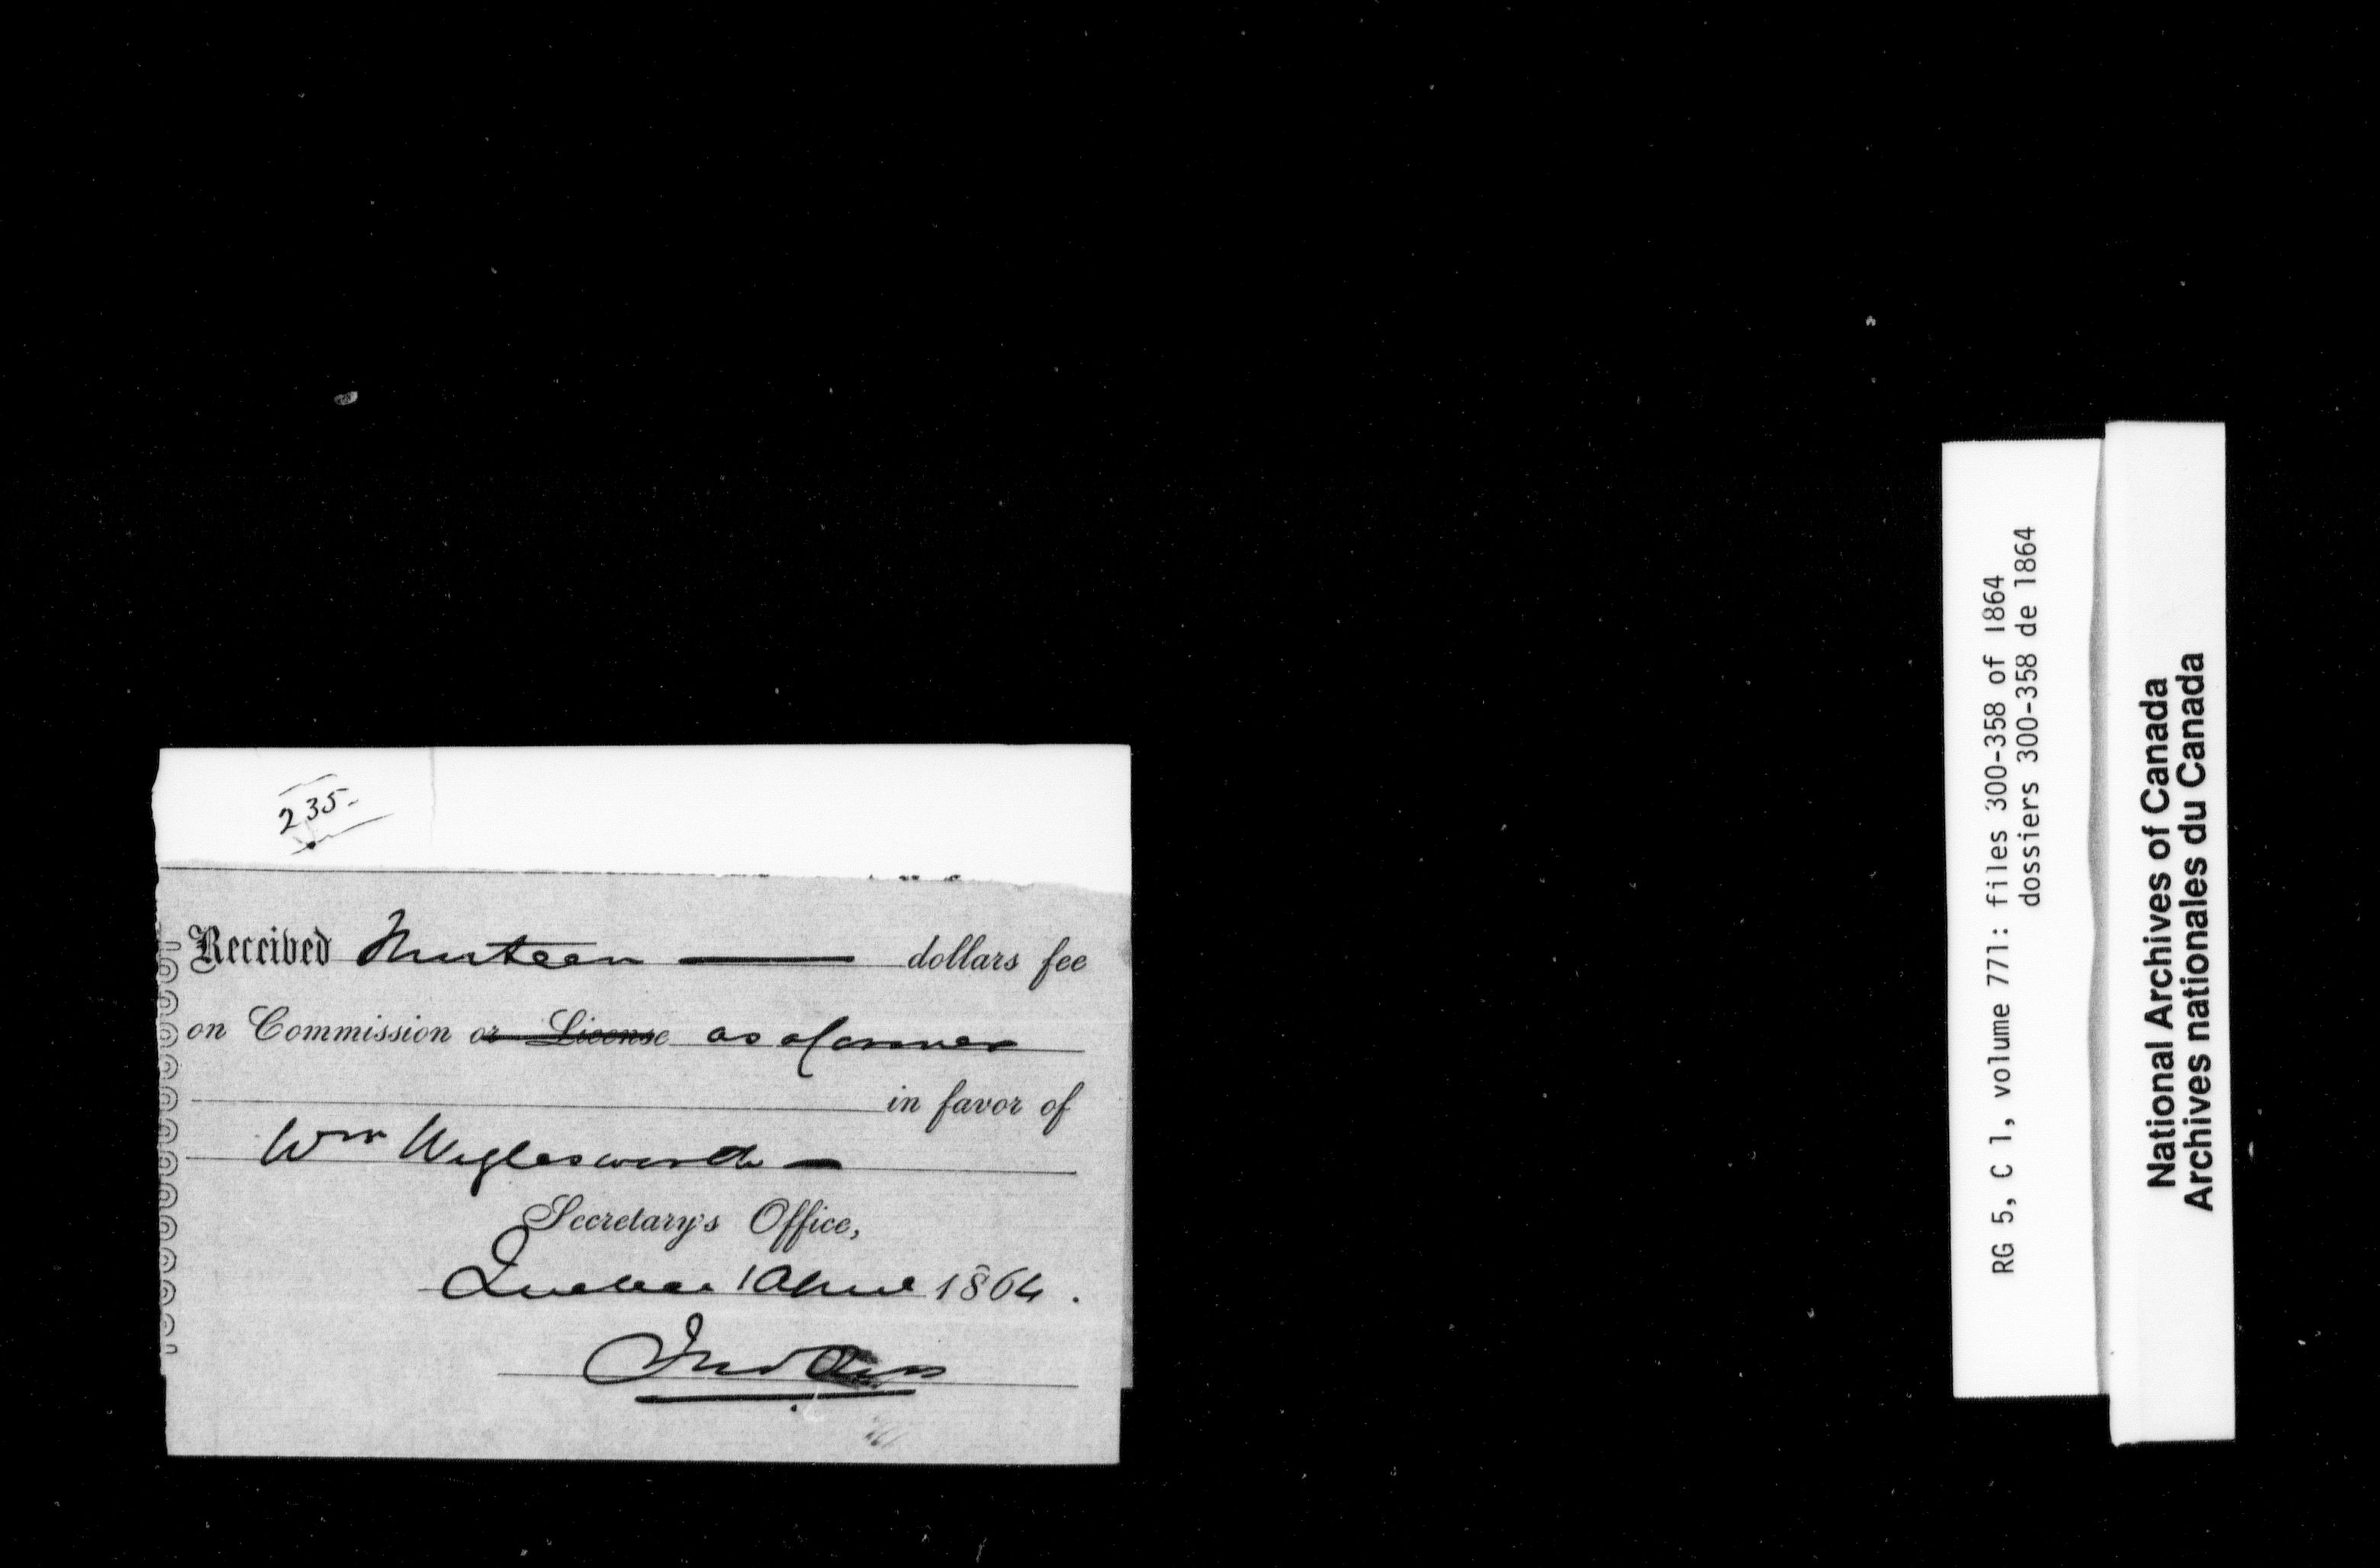 235-
Received dollars fee
on Commission or License as
in favor of
Wm Wiglesworth
Secretary's Office,
Quebec 1 April 1864.
RG 5, C 1, volume 771: files 300-358 of 1864
dossiers 300-358 de 1864
National Archives of Canada
Archives nationales du Canada